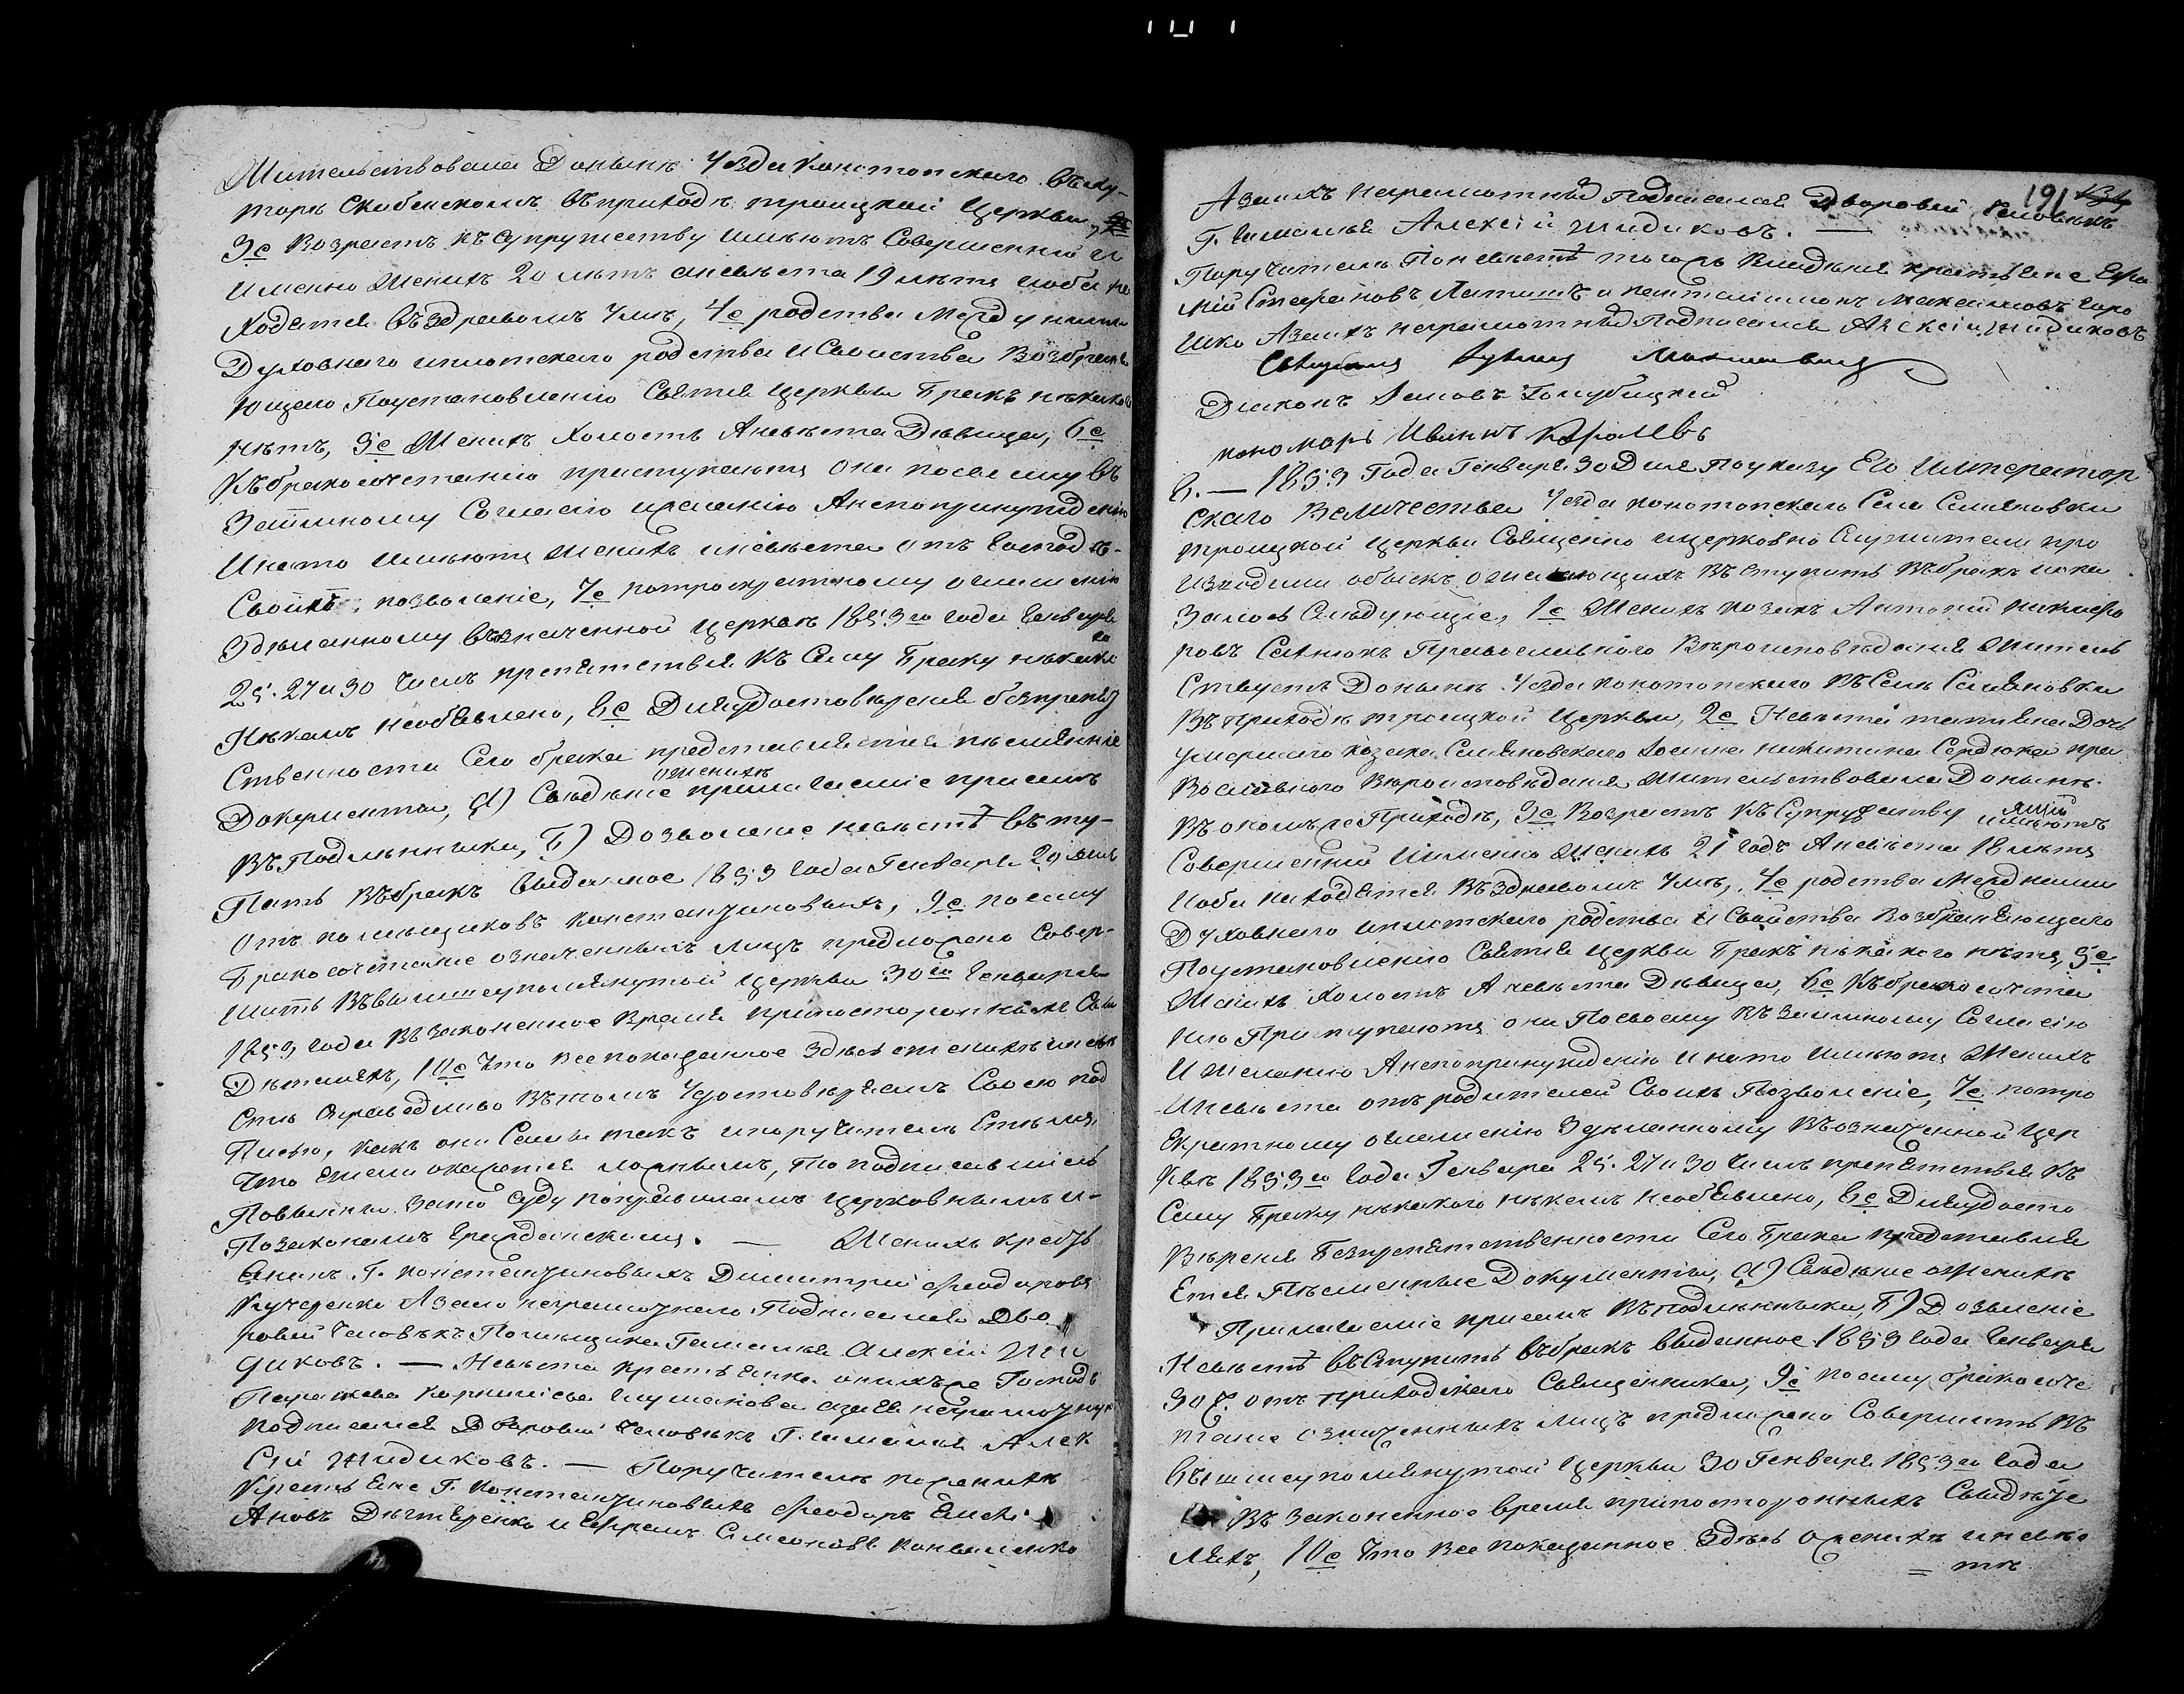 Жительствовала Донынѣ Уѣзда Конотопскаго въ ху-
торѣ Скибенскомъ въ приходѣ троицкой Церкви,
3е Возрастъ къ супружеству имѣютъ Совершенный и
именно Женихъ 20 лѣтъ а невѣста 19 лѣтъ и оба на
ходятся въ здравомъ умѣ, 4е родства Между ними
Духовнаго и плотскаго родства и Свойства Возбраня
ющаго По установленію Святыя Церкви Бракъ никакого
нѣтъ, 5е Женихъ Холостъ А невѣста Дѣвица, 6е
Къ бракосочетанію приступаютъ они по своему въ
Заимному Согласію и желанію А не по принужденію
И на то имѣютъ женихъ и невѣста отъ Господъ-
Своихъ позволеніе, 7е по троекратному оглашенію
Здѣланному въ означенной церквѣ 1853го года Генваря
25. 27 и 30 Числъ препятствія къ Сему Браку никако го
Никемъ необъявлено, 8е Для удостовѣренія безпрепят
Ственности Сего брака представляются письмянніе
Документы, А) Свѣдѣніе о женихѣ прилагаемое при семъ
Въ Подлынныки, Б) Дозволеніе невѣстѣ въ сту-
Пать Въ бракъ выданное 1853 года Генваря 29 дня
отъ помѣщиковъ Константиновыхъ, 9е по сему
Бракосочетаніе означенныхъ лицъ предположено Совер-
шить Въ вышеупомянутой Церкви 30го Генваря
1853 года Въ законное время при постороннихъ Сви
Дѣтеляхъ, 10е Что все показанное здѣсь о женихѣ и невѣ
Стѣ справедливо Въ томъ Удостовѣряемъ Своею под
Писью, какъ они Сами такъ и поручители Съ тѣмъ
Что Ежели окажется ложнымъ, то подписавшіеся
Повинны за то Суду по правиламъ Церковнымъ и-
По законамъ Гражданскимъ. — Женихъ кресть
Янинъ Г. Константиновыхъ Димитрій Феодоровъ
Кучеренко А за его неграмотнаго Подписался Дво
ровый Человѣкъ Помѣщика Гамалѣя Алексій Жи
диковъ. — Невѣста крестьянка онихъ же Господъ
Параскева Корнилієва Глушакова а за ея неграмотную
подписался Дворовый Человѣкъ Г. Гамалѣя Алек
Сій Жидиковъ. — Поручители по женихѣ
Крестьяне Г. Константиновыхъ Феодоръ Емелі
Ановъ Дѣхтяренко и Ефремъ Симеоновъ Коваленко
191
А за ихъ неграмотныхъ Подписался Дворовый Человѣкъ
Г. Гамалѣя Алексій Жидиковъ. —
Поручители По невѣстѣ тогожъ Владѣнія крестьяне
ній Стефановъ и Пантелимонъ Максимовъ
шко А за ихъ неграмотныхъ Подписался Алексій Жидиковъ
Діаконъ Іаковъ Голубицкій
пономарь Иванъ
8. — 1853 Года Генваря 30 Дня По указу Его Император
скаго Величества Уѣзда Конотопскаго Села Семяновки
троицкой Церкви Священно и церковно Служители про
изводили обыскъ о желающихъ Въступить Въ бракъ и ока
залось Слѣдующіе, 1е Женихъ козакъ Антоній Никифо
ровъ Православного Вѣроисповѣданія Житель
Ствуетъ Донынѣ Уѣзда Конотопскаго Въ Селѣ Семяновки
Въ Приходѣ троицкой Церкви, 2е Невѣста татіяна Дочь
умершаго козака Семяновскаго Іосипа Никитина Сердюка пра
Вославного Вѣроисповѣданія Жительствовала Донынѣ
Въ ономъ же Приходѣ, 3е Возрастъ Къ Супружеству имѣютъ
Совершенный Именно Женихъ 21 годъ А невѣста 18 лѣтъ
И оба находятся Въ здравомъ Умѣ, 4е родства Между ними
Духовнаго и плотскаго родства и Свойства Возбраняющаго
По установленію Святыя Церкви Бракъ никакого нѣтъ, 5е
Женихъ Холостъ А невѣста Дѣвица, 6е Къ бракосочета
нію Приступаютъ они По своему Въ заимному Согласію
и Желанію А не по принужденію и на то имѣютъ Женихъ
и невѣста отъ родителей Своихъ Позволеніе, 7е по тро
екратному оглашенію Здѣланному Въ означенной Цер
квѣ 1853го Года Генваря 25. 27 и 30 Числъ препятствія Къ
Сему Браку никакого никемъ необъявлено, 8е Для удосто
Вѣренія Безпрепятственности Сего Брака представля
Ется Письменные Документы, А) Свѣдѣніе о женихѣ
Прилагаемое при семъ Въ подлынныки, Б) Дозволеніе
Невѣстѣ въ Ступить въ бракъ выданное 1853 года Генваря
30 Ч. отъ Приходскаго Священника, 9е по сему бракосоче
таніе означенныхъ лицъ предположено Совершить Въ
Вышеупомянутой Церкви 30 Генваря 1853го Года
Въ законное время при постороннихъ Свидѣте
ляхъ, 10е Что Все показанное Здѣсь о женихѣ и невѣс
тѣ